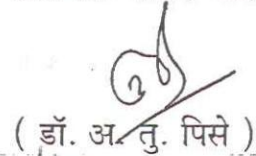 ( डॉ. अ. तु. पिसे )